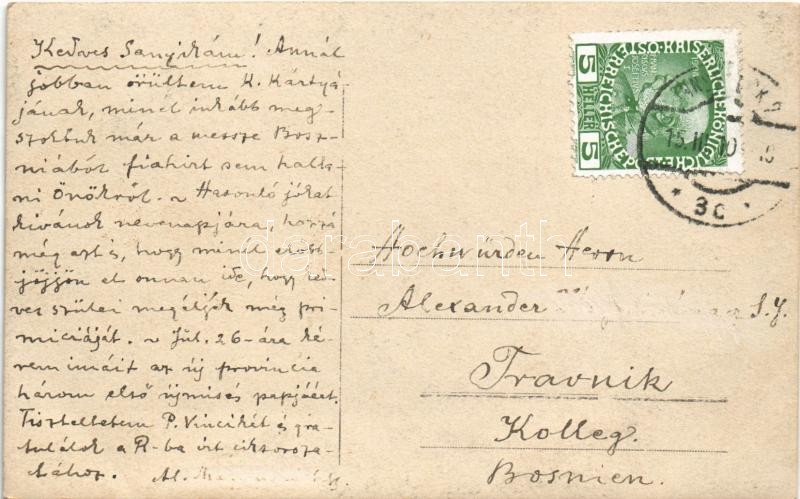 Kedves Sanyikám! Annál
jobban örültem K. Kártyá-
jának, minél inkább meg-
szoktuk már a messze Bosz-
niából fiahirt sem halla-
ni Önökről. Hasonló jókat
kivánok nevenapjára, hozzá
még azt is, hogy minél előbb
jöjjön el onnan ide, hogy ked-
ves szülei megéljék még pri-
miciáját. Jul. 26-ára ké-
rem imáit az új provincia
három első újmisés papjáért.
Tisztelletem P. Vincikét és gra-
tulálok a R-ba írt ciksoroza-
tához. Al.
KAISERLICHE KÖNIGLICHE ÖSTERREICHISCHE POST
5 HELLER 5
1908
15. II. 10
* 3c *
Hochwürden Herrn
Alexander S. J.
Travnik
Kolleg.
Bosnien.
darabanth